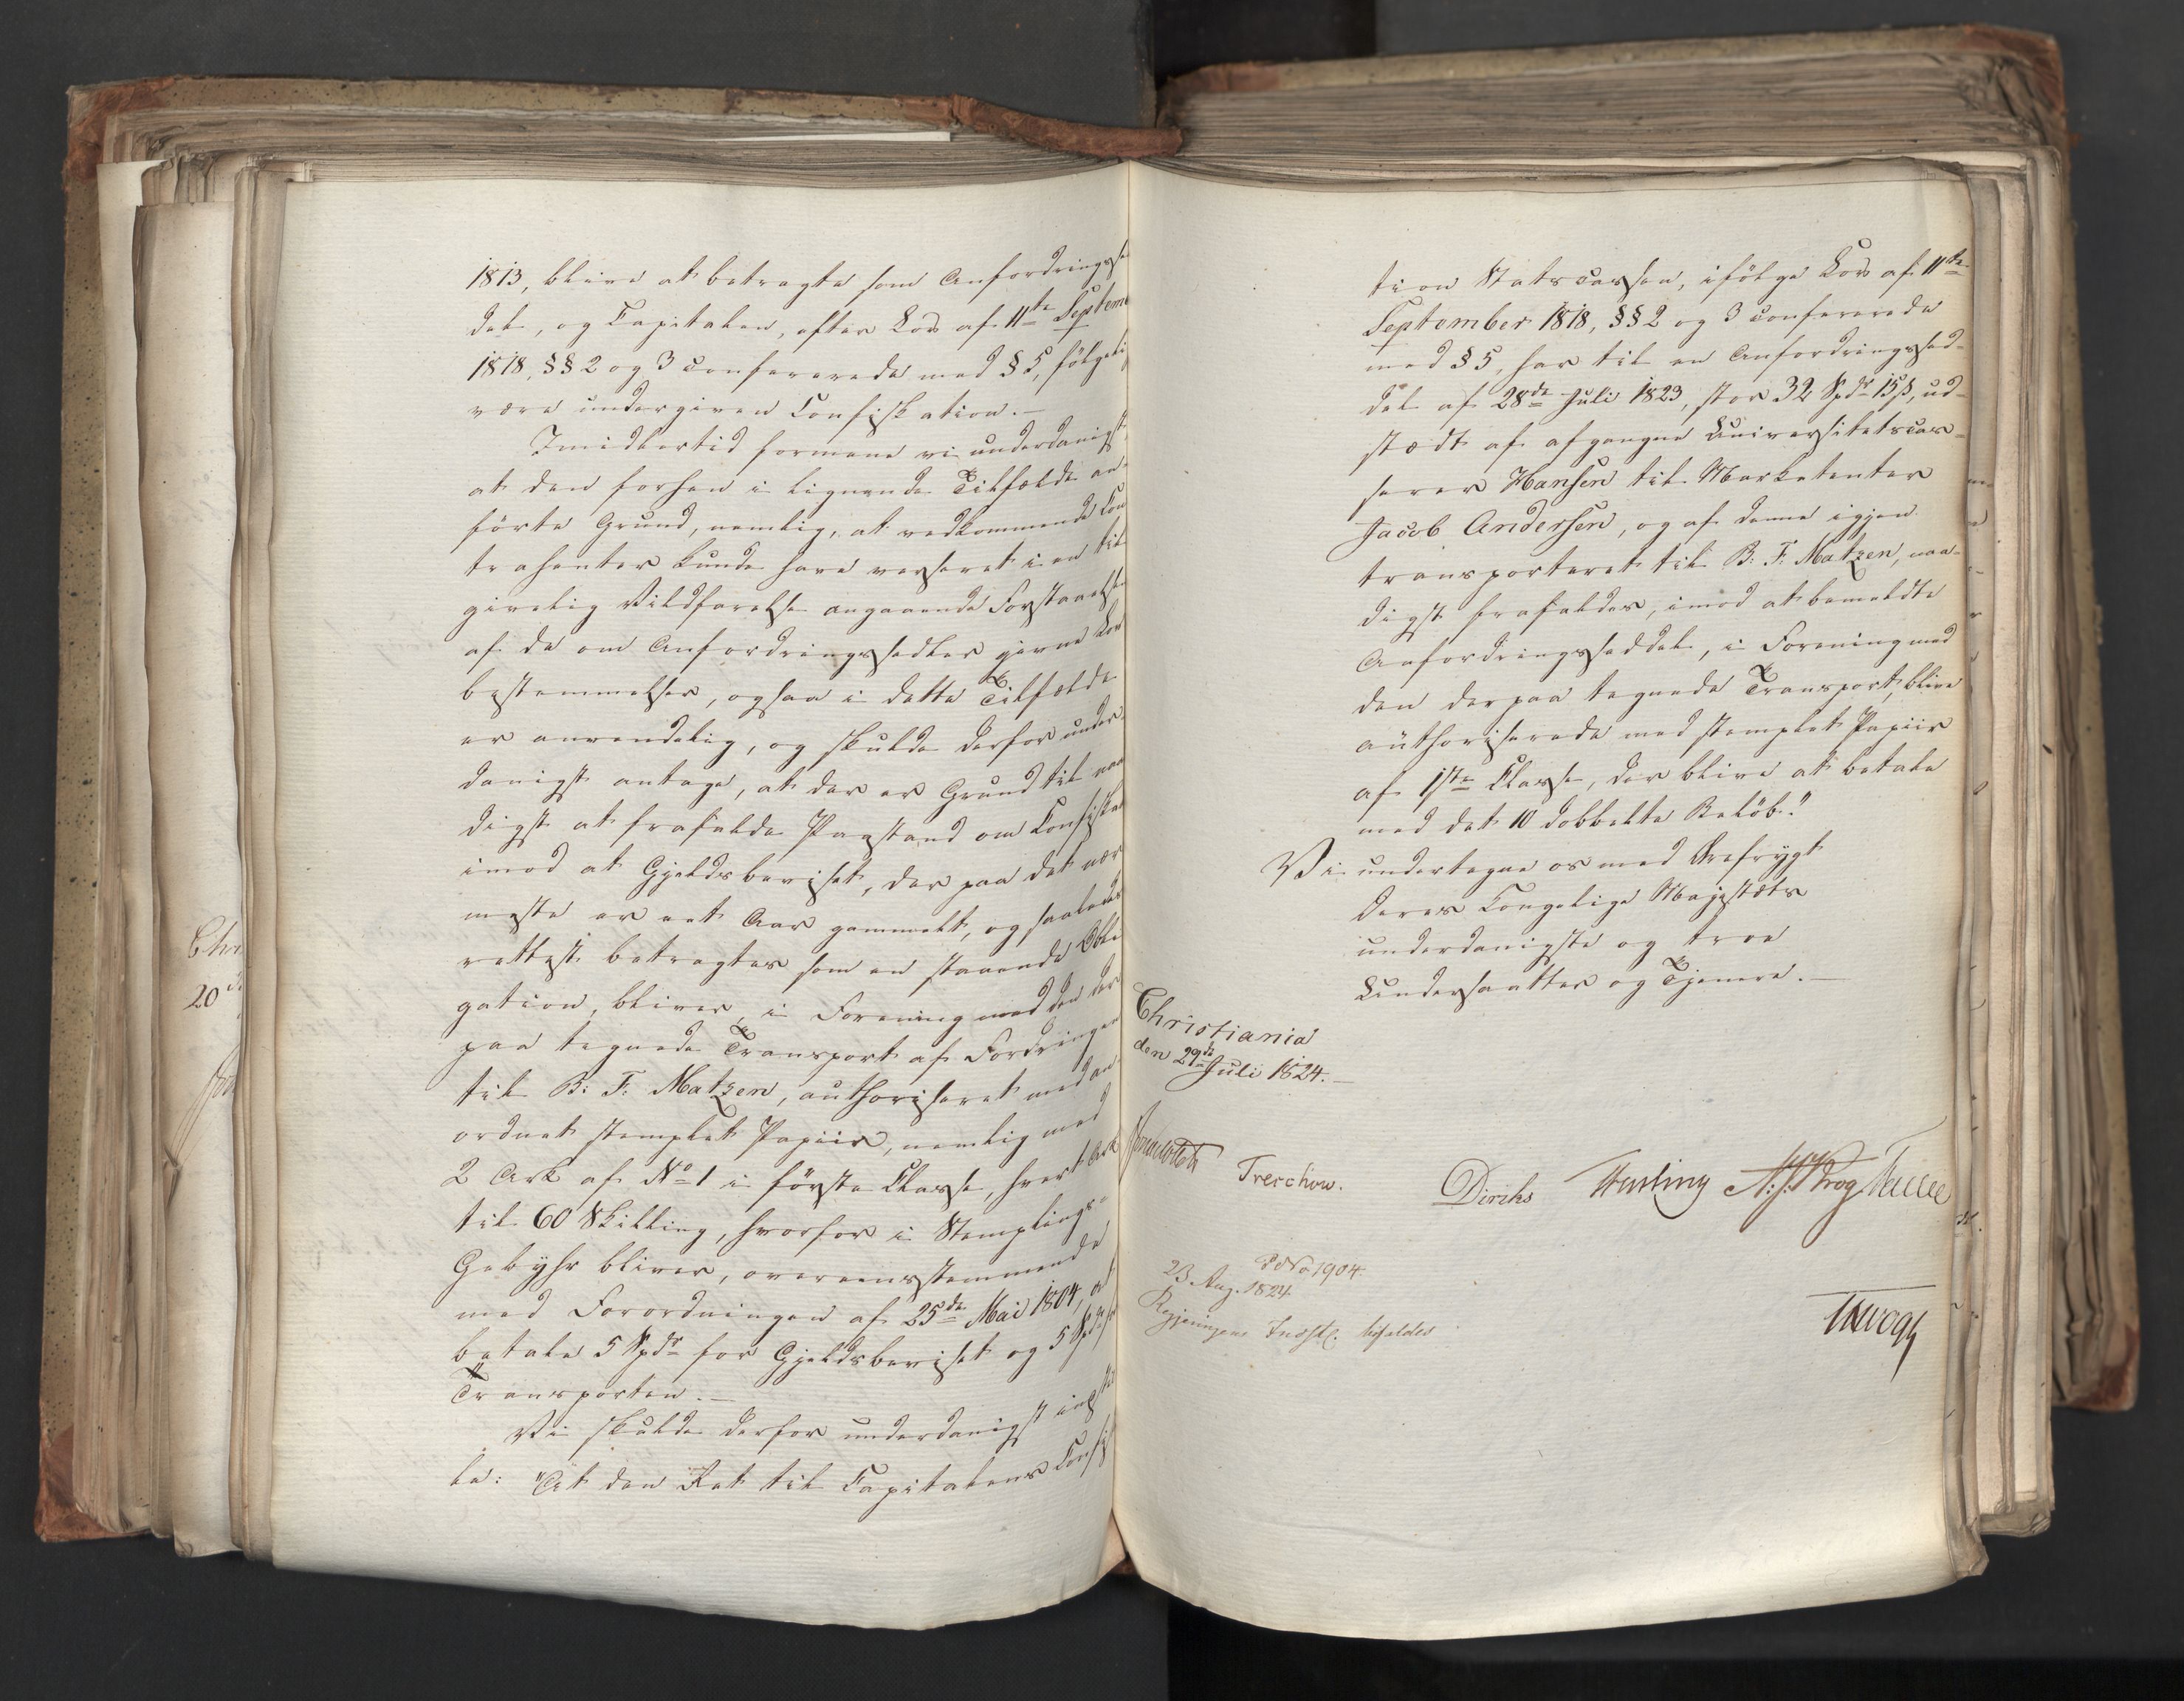 1813, blive at betragte som Anfordringsse
del, og Capitalen, efter Lov af 11te Septem
1818, §§ 2 og 3 confererede med § 5, følgeli
være undergiven Confiskation.-
Imidlertid formene vi underdanigst,
at den forhen i lignende Tilfælde an-
førte Grund, nemlig, at vedkommende Con
trahenter kunde have verseret i en til
givelig Vildfarelse angaaende Forstaaelse
af de om Anfordringssedler givne Lov
bestemmelser, ogsaa i dette Tilfælde
er anvendelig, og skulde derfor under
danigst antage, at der er Grund til naa
digst at frafalde Paastand om Confiska
imod at Gjeldsbeviset, der paa det nær
meste er eet Aar gammelt, og saaledes
rettest betragtes som en staaende Obli
gation, bliver, i Forening med den der
paa tegnede Transport af Fordringen
til B: F: Matzen, authoriseret med an
ordnet stemplet Papiir, nemlig med
2 Ark af No 1 i første Classe, hvert Ark
til 60 Skilling, hvorfor i Stemplings-
Gebyhr bliver, overeensstemmende
med Forordningen af 25de Mai 1804, at
betale 5 Spdr for Gjeldsbeviset og 5 Spdr for
Transporten.-
Vi skulde derfor underdanigst indstil
le: "At den Ret til Capitalens Confis
tion Statscassen, ifølge Lov af 11te
September 1818, §§ 2 og 3 confererede
med § 5, har til en Anfordringssed-
del af 28de Juli 1823, stor 32 Spdr 15 ß, ud-
stædt af afgangne Universitetscas-
serer Hansen til Marketenter
Jacob Andersen, og af denne igjen
transporteret til B: F: Matzen, naa-
digst frafaldes, imod at bemeldte
Anfordringsseddel, i Forening med
den derpaa tegnede Transport, blive
authoriserede med stemplet Papiir
af 1ste Classe, der blive at betale
med det 10 dobbelte Beløb."
Vi undertegne os med Ærefrygt
Deres Kongelige Majestæts
underdanigste og troe
Undersaatter og Tjenere.-
Christiania
den 29de Juli 1824.-
Treschow.
Diriks
Krog
23. Aug. 1824
Regjeringens Indst. bifaldes